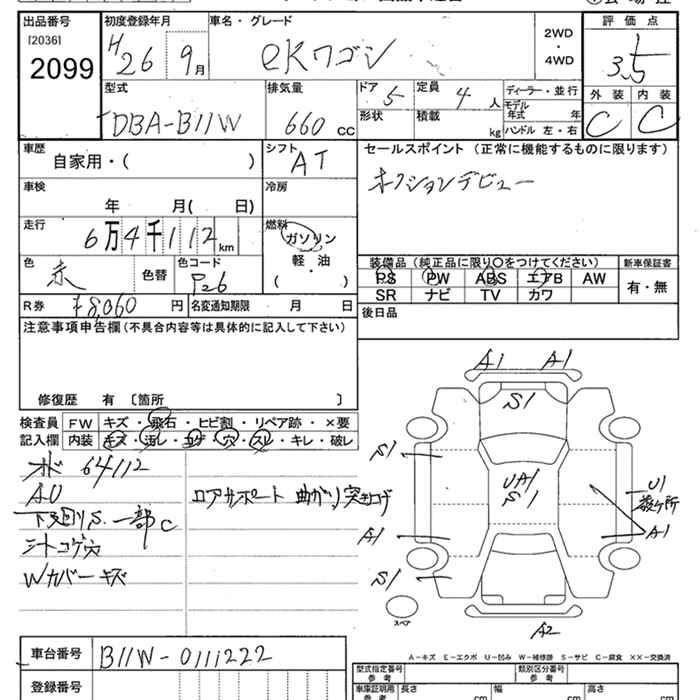 出品番号 初度登録年月 車名・グレード 評価点
[2036] H 26 9月 eKワゴン 2WD・4WD 3.5
2099
外装 内装
C C
型式 排気量 ドア 定員 ディーラー・並行
DBA-B11W 660 CC 5 4人 モデル年式 年
形状 積載 kg ハンドル 左・右
車歴 シフト セールスポイント(正常に機能するものに限ります)
自家用・( ) AT
オクションデビュー
車検 冷房
年 月( 日)
走行 燃料
6万4千112km ガソリン
軽・油
( )
装備品(純正品に限り○をつけてください) 新車保証書
色 色替 色コード PS PW ABS エアB AW 有・無
赤 P26 SR ナビ TV カワ
R券 ¥8,060円 名変通知期限 月 日 後日品
注意事項申告欄(不具合内容等は具体的に記入して下さい)
修復歴 有 〔箇所 〕
検査員 FW キズ・飛石・ヒビ割・リペア跡・×要
記入欄 内装 キズ・汚レ・コゲ・穴・スレ・キレ・破レ
オド 64112
AO ロアサポート 曲がり 突き上げ
下廻りS. 一部C
シートコゲ穴
Wカバーキズ
A1 A1
S1
S1
UA1
S1
U1
数ヶ所
A1
A1
S1
スペア
A2
車台番号 B11W-0111222
登録番号
A-キズ E-エクボ U-凹み W-補修跡 S-サビ C-腐食 ××-交換済
型式指定番号 参考 類別区分番号 参考
車庫証明用 参考 長さ cm 幅 cm 高さ cm